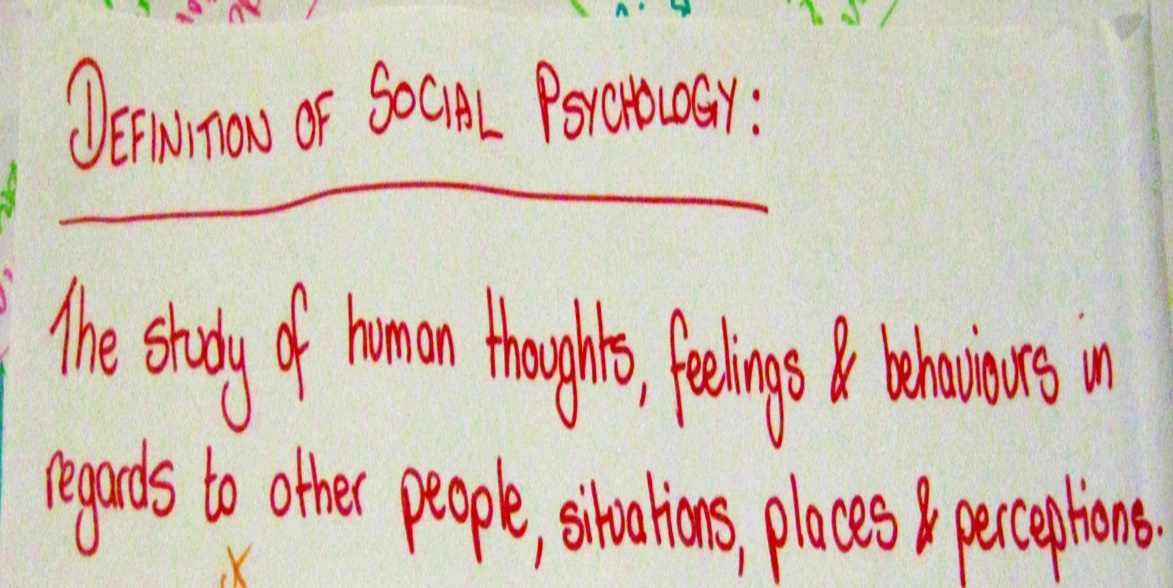 DEFINITION OF SOCIAL PSYCHOLOGY:
The study of human thoughts, feelings & behaviours in
regards to other people, situations, places & perceptions.